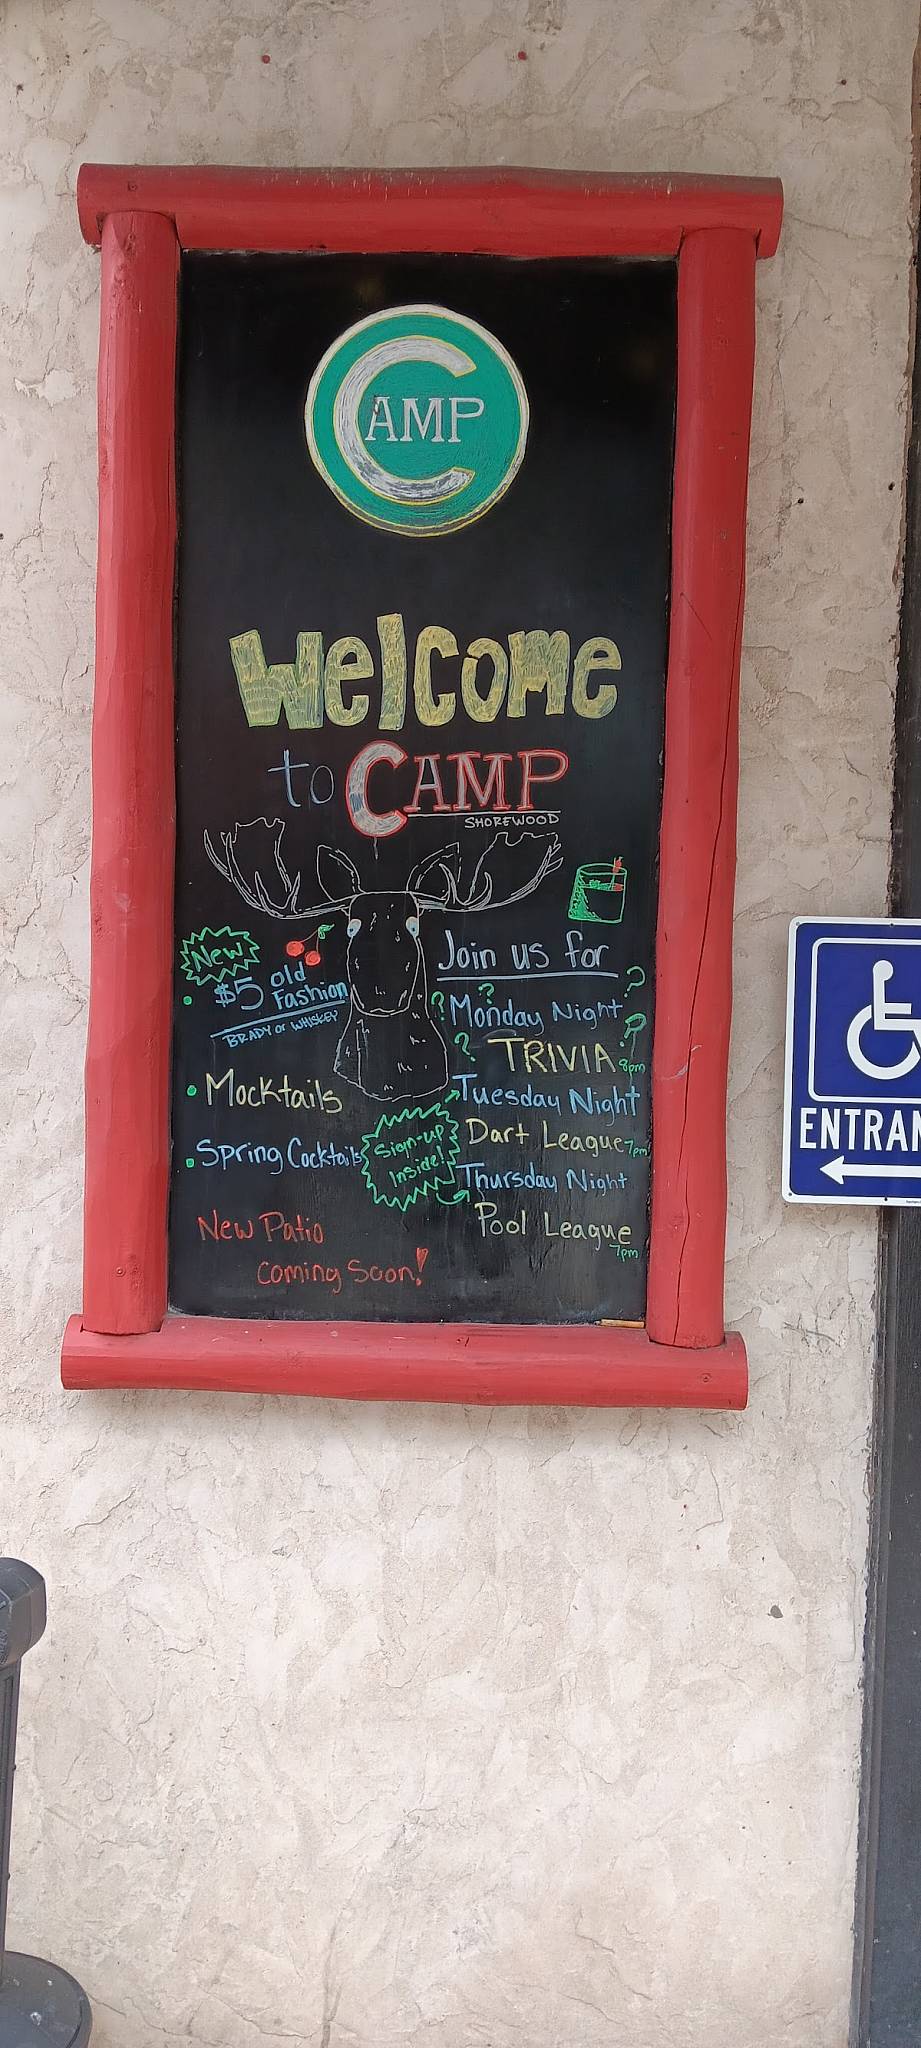 CAMP
Welcome
to CAMP
SHOREWOOD
New
$5 old
Fashion
BRADY or WHISKEY
Mocktails
Spring Cocktails
New Patio
coming Soon!
Join us for
Monday Night
TRIVIA 8pm
Tuesday Night
Dart League 7pm
Sign-up
inside!
Thursday Night
Pool League
7pm
ENTRAN